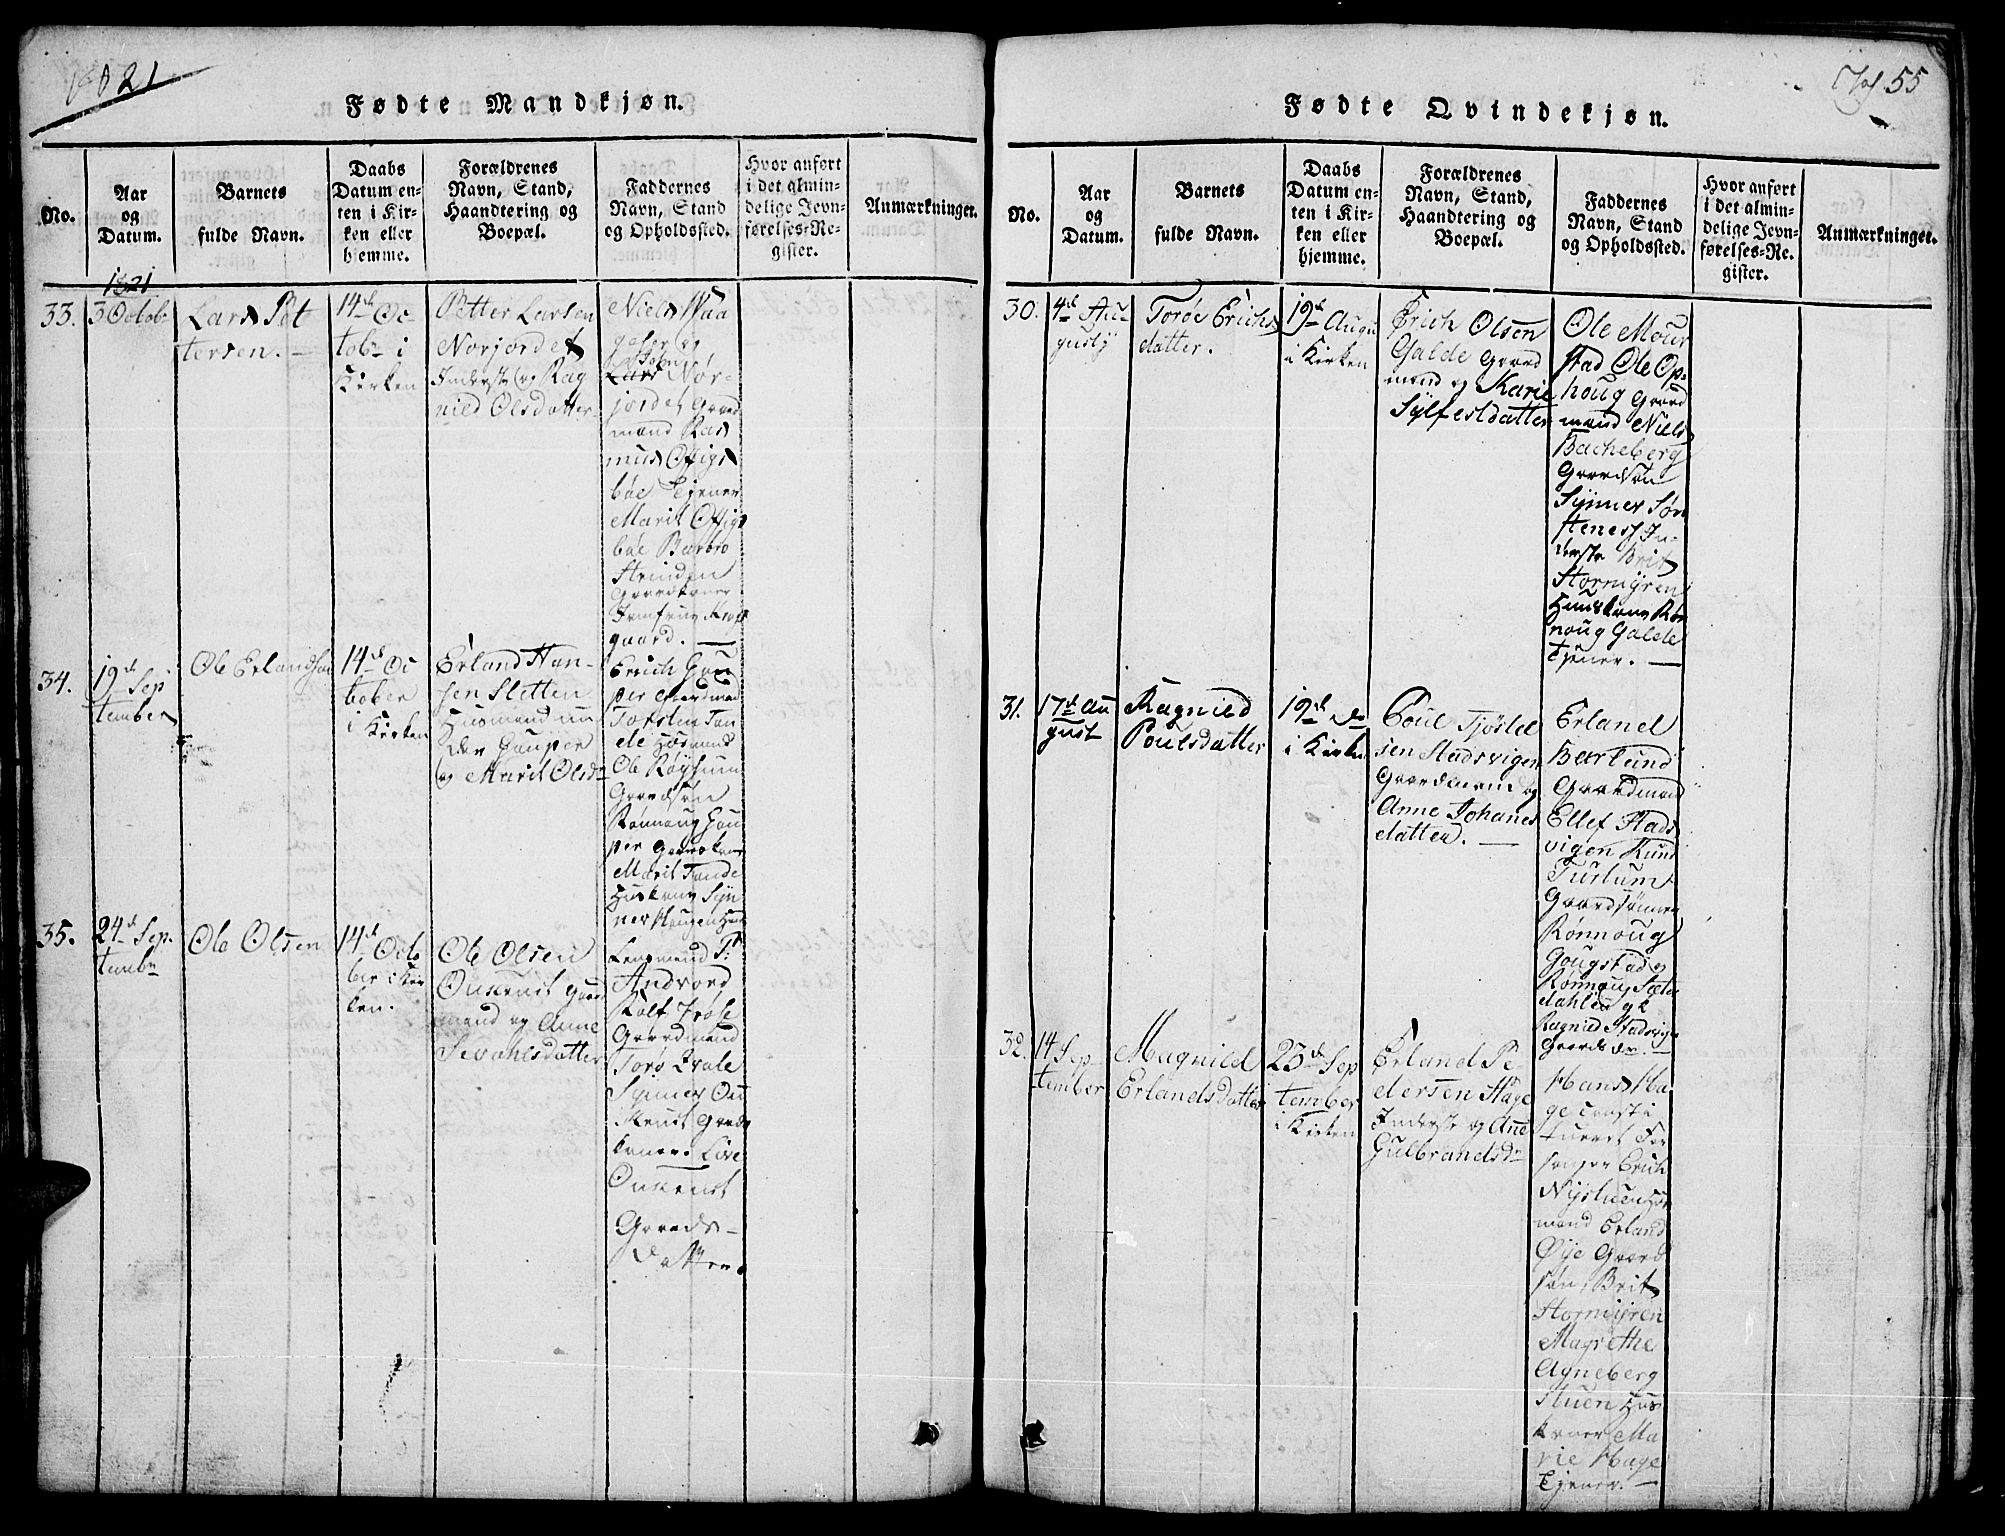 1821
Fødte Mandkjøn.
No.
Aar
og
Datum.
Barnets
fulde Navn.
Daabs
Datum en-
ten i Kir-
ken eller
hjemme.
Forældrenes
Navn, Stand,
Haandtering og
Boepæl.
Faddernes
Navn, Stand
og Opholdssted.
Hvor anført
i det almin-
delige Jevn-
førelses-Re-
gister.
Anmærkninger.
1821
33.
3 Octob:
Lars Pet
tersen. —
14de Oc-
tobr i
Kirken
Petter Larsen
Norjordet
Inderst og Rag
nild Olsdatter
Niels
og
Nør-
jordet Gaard
mand Ras
mus Offigs
bøe Tjener
Marit Offigs
bøe Barbro
Strinden
Gaardkoner
Jomfrue
gaard. —
34.
19de Sep
tember
Ole Erlandsen
14de Oc
tober
i Kirken
Erland Han-
sen Sletten
Husmand un
der Gouper
og Marit Olsdr
Erich Gou
per Gaardmand
Torsten Tan
de Husmand
Ole Røysum
Gaardsøn
Rønnoug Gou
per Gaardkone
Marit Tande
Huskone Syn
nev Haugen Hus
35.
24de Sep-
tembr
Ole Olsen
14de Octo
ber i Kir
ken.
Ole Olsen
Qukenst Gaard
mand og Anne
Sevahlsdatter
Lensmand T:
Andvord
Rolf Trøse
Gaardmand
Torø Qvale
Synnev Qu
kenst Gaard
koner. Live
Qukenst
Gaards-
datter.
Pag 55
Fødte Qvindekjøn.
No.
Aar
og
Datum.
Barnets
fulde Navn.
Daabs
Datum en-
ten i Kir-
ken eller
hjemme.
Forældrenes
Navn, Stand,
Haandtering og
Boepæl.
Faddernes
Navn, Stand
og Opholdssted.
Hvor anført
i det almin-
delige Jevn-
førelses-Re-
gister.
Anmærkninger.
30.
4de Au-
gusty
Torøe Erichs
datter.
19de Augu
i Kirken
Erich Olsen
Galde Gaard
mand og Karie
Sylfestdatter
Ole Mour
stad Ole Op-
houg Gaard
mand Niels
Bacheberg
Gaardsøn
Synnev Sør
stenes In-
derste Brit
Stormyren
Huuskone Røn
noug Galde
Tjener. —
31.
17de Au
gust
Ragnild
Poulsdatter
19de do
i Kirken
Poul Tjøstel
sen Stadsvigen
Gaardbruger og
Anne Johanes
datter. —
Erland
Bærlund
Gaardmand
Ellef Stads
vigen Knud
Turtum
Gaardsønner
Rønnoug
Gougstad og
Rønnoug Sæter
dahlen gk
Ragnild Stadsvigen
Gaards dr. —
32.
14 Sep-
tember
Magnild
Erlandsdatter
23de Sep
tember
i Kirken
Erland Pe-
dersen Hage
Inderst og Ane
Gulbrandsdr
Hans Ha-
ge Consti
tueert For
sanger Erich
Nystuen Hus
mand Erland
Øye Gaard
søn, Brit
Stormyren
Magrethe
Agneberg
Stuen Hus
koner Ma
rie Hage
Tjener. —